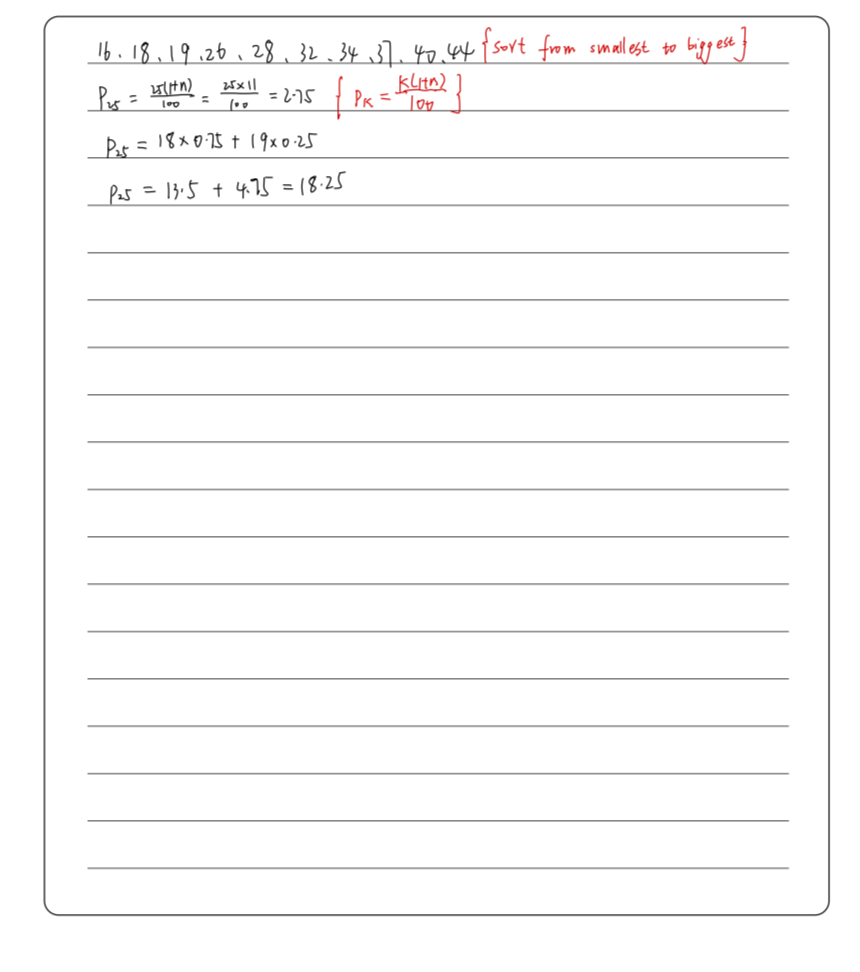 16、18、19、26、28、32、34、37、40、44 {sort from smallest to biggest}
P₂₅ = 25(1+n)/100 = 25×11/100 = 2.75 { Pₖ = K(1+n)/100 }
P₂₅ = 18×0.75 + 19×0.25
P₂₅ = 13.5 + 4.75 = 18.25